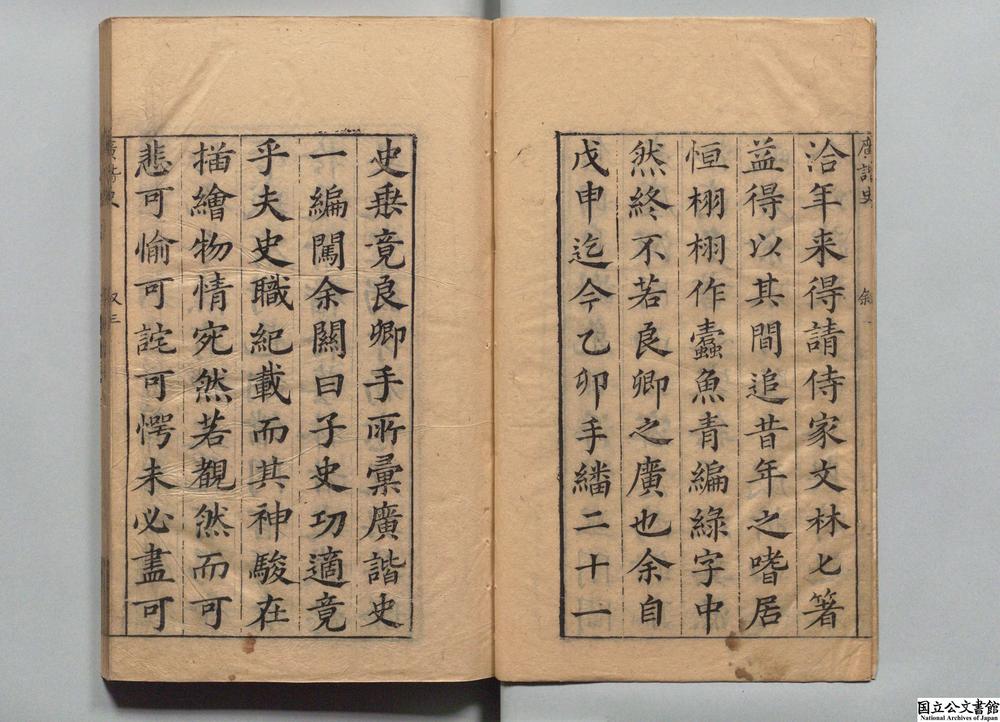 廣諧史
叙
洽年来得請侍家文林匕箸
益得以其間追昔年之嗜居
恒栩栩作蠹魚青編綠字中
然終不若良卿之廣也余自
戊申迄今乙卯手繙二十一
史垂竟良卿手所彙廣諧史
一編闖余關曰子史功適竟
乎夫史職紀載而其神駿在
描繪物情宛然若覩然而可
悲可愉可詫可愕未必盡可
廣諧史
叙三
国立公文書館
National Archives of Japan